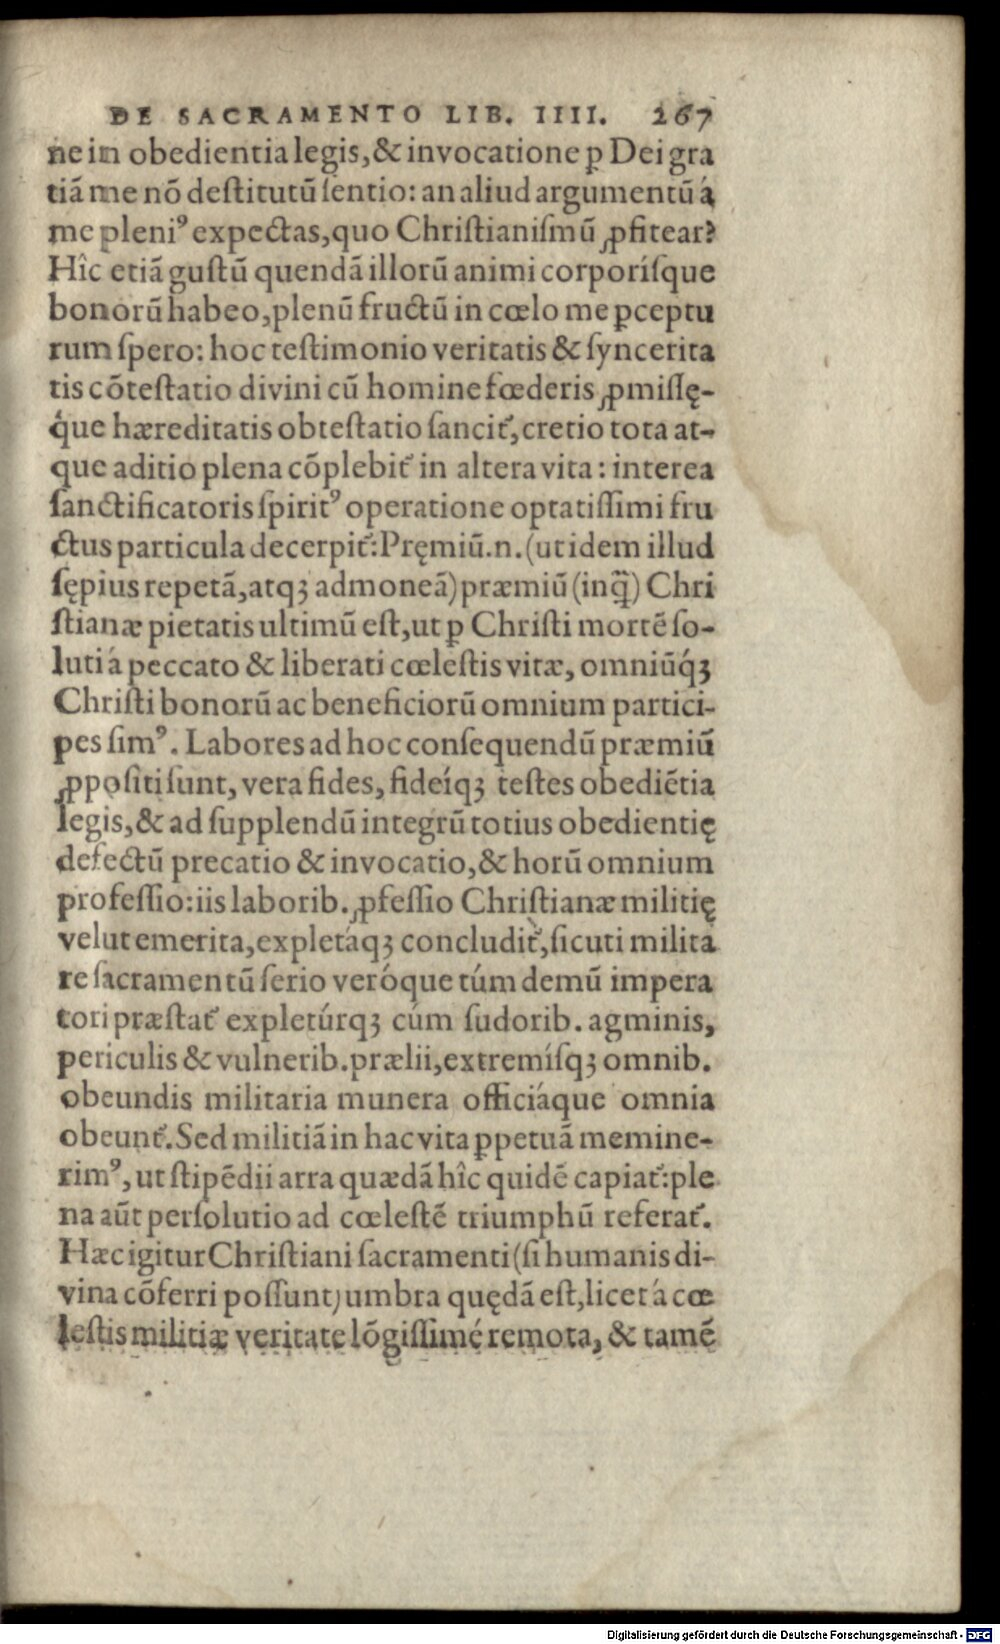 DE SACRAMENTO LIB. IIII. 267
ne in obedientia legis, & invocatione ꝑ Dei gra
tiã me nõ deſtitutũ ſentio: an aliud argumentũ á
me pleniꝰ expectas, quo Chriſtianiſmũ ꝓfitear?
Hîc etiã guſtũ quendã illorũ animi corporíſque
bonorũ habeo, plenũ fructũ in cœlo me ꝑceptu
rum ſpero: hoc teſtimonio veritatis & ſyncerita
tis cõteſtatio divini cũ homine fœderis, ꝓmiſſę-
q́ue hæreditatis obteſtatio ſancit᷑, cretio tota at-
que aditio plena cõplebit᷑ in altera vita: interea
ſanctificatoris ſpiritꝰ operatione optatiſſimi fru
ctus particula decerpit᷑: Pręmiũ.n.(ut idem illud
ſępius repetã, atqꝫ admoneã) præmiũ (inq̃) Chri
ſtianæ pietatis ultimũ eſt, ut ꝑ Chriſti mortẽ ſo-
luti á peccato & liberati cœleſtis vitæ, omniũq́ꝫ
Chriſti bonorũ ac beneficiorũ omnium partici-
pes ſimꝰ. Labores ad hoc conſequendũ præmiũ
ꝓpoſiti ſunt, vera fides, fideíqꝫ teſtes obediẽtia
legis, & ad ſupplendũ integrũ totius obedientię
defectũ precatio & invocatio, & horũ omnium
profeſſio: iis laborib. ꝓfeſſio Chriſtianæ militię
velut emerita, expletáqꝫ concludit᷑, ſicuti milita
re ſacramentũ ſerio veróque túm demũ impera
tori præſtat᷑ expletúrqꝫ cúm ſudorib. agminis,
periculis & vulnerib. prælii, extremíſqꝫ omnib.
obeundis militaria munera officiáque omnia
obeunt᷑. Sed militiã in hac vita ꝑpetuã memine-
rimꝰ, ut ſtipẽdii arra quædã hîc quidẽ capiat᷑: ple
na aũt perſolutio ad cœleſtẽ triumphũ referat᷑.
Hæc igitur Chriſtiani ſacramenti (ſi humanis di-
vina cõferri poſſunt) umbra quędã eſt, licet á cœ
leſtis militiæ veritate lõgiſſimé remota, & tamẽ
Digitalisierung gefördert durch die Deutsche Forschungsgemeinschaft - DFG